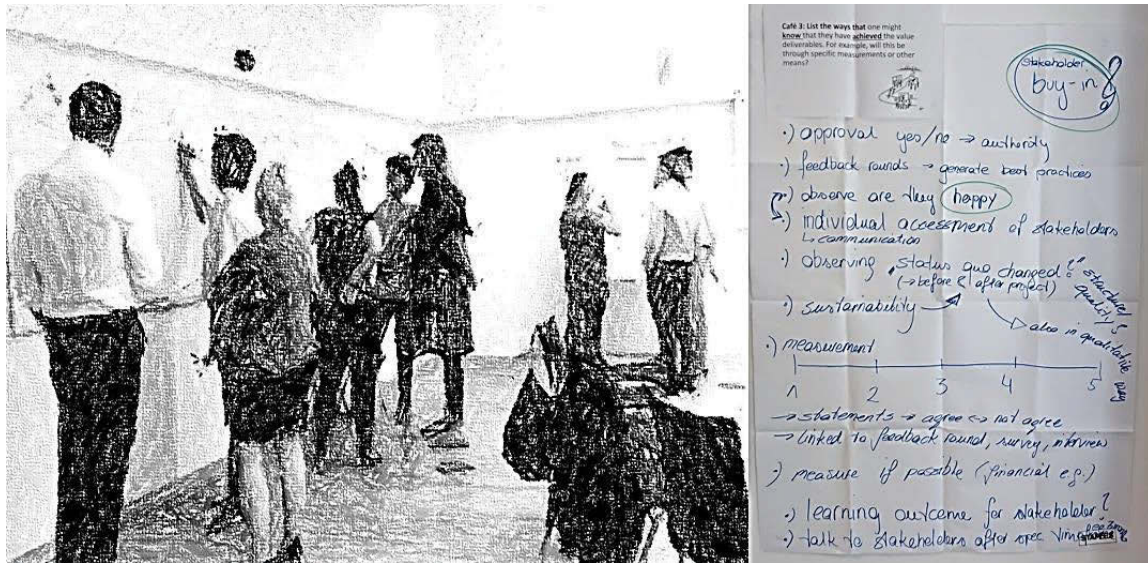 Café 3: List the ways that one might
know that they have achieved the value
deliverables. For example, will this be
through specific measurements or other
means?
stakeholder
buy-in
·) approval yes/no → authority
·) feedback rounds → generate best practices
·) observe are they happy
·) individual assessment of stakeholders
↳ communication
·) observing "status quo changed?"
(→ before & after project)
structure,
quality
·) sustainability
→ also in qualitative way
·) measurement
1 2 3 4 5
→ statements → agree <-> not agree
→ linked to feedback round, survey, interview
·) measure if possible (financial e.g.)
·) learning outcome for stakeholder?
·) talk to stakeholders after spec time